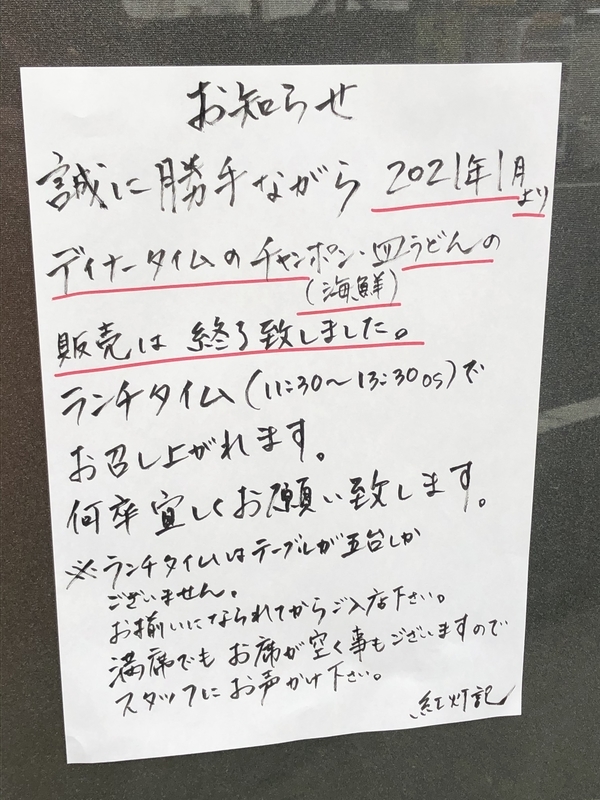 お知らせ
誠に勝手ながら 2021年1月より
ディナータイムのチャンポン・皿うどんの
(海鮮)
販売は 終了致しました。
ランチタイム(11:30～13:30 OS)で
お召し上がれます。
何卒宜しくお願い致します。
※ランチタイムはテーブルが五台しか
ございません。
お揃いになられてからご入店下さい。
満席でもお席が空く事もございますので
スタッフにお声かけ下さい。
紅灯記